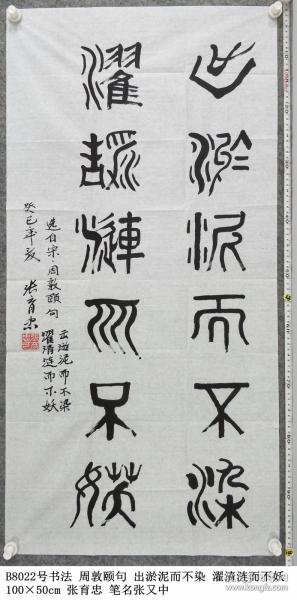 出淤泥而不染
濯清漣而不妖
选自宋·周敦颐句
出淤泥而不染
濯清涟而不妖
癸巳年
张育忠
B8022号书法 周敦颐句 出淤泥而不染 濯清涟而不妖
100×50cm 张育忠 笔名张又中